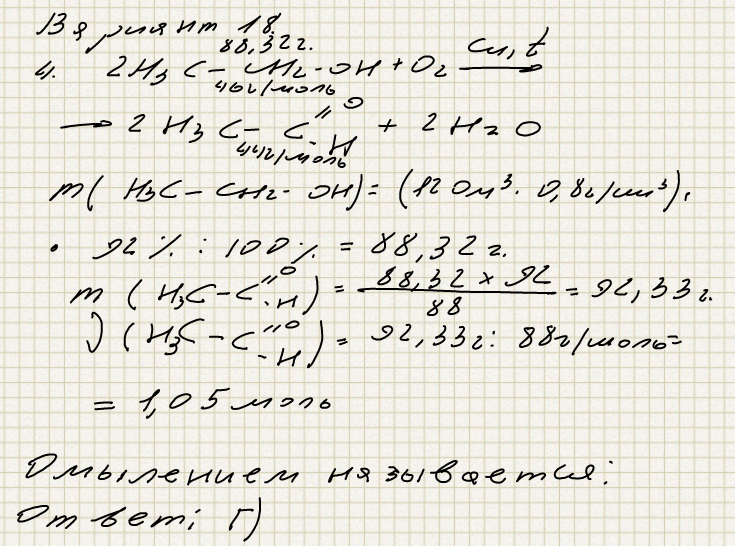 Вариант 18.
88,32г.
4. 2H₃C – CH₂ - OH + O₂ Cu, t →
46г/моль
→ 2 H₃C – C =O - H + 2 H₂O
44г/моль
m( H₃C – CH₂ - OH) = (120м³ · 0,8г/см³) ·
· 92 % : 100 % = 88,32 г.
m ( H₃C – C =O - H ) = 88,32 × 92 / 88 = 92,33 г.
ν ( H₃C – C =O - H ) = 92,33г : 88г/моль =
= 1,05 моль
Омылением называется:
Ответ: Г)